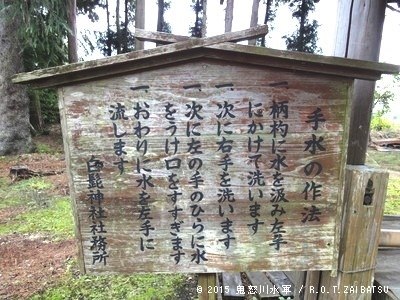 手水の作法
一、柄杓に水を汲み左手
にかけて洗います
一、次に右手を洗います
一、次に左の手のひらに水
をうけ口をすすぎます
一、おわりに水を左手に
流します
白髭神社社務所
© 2015 鬼怒川水軍 / R.O.T. ZAIBATSU